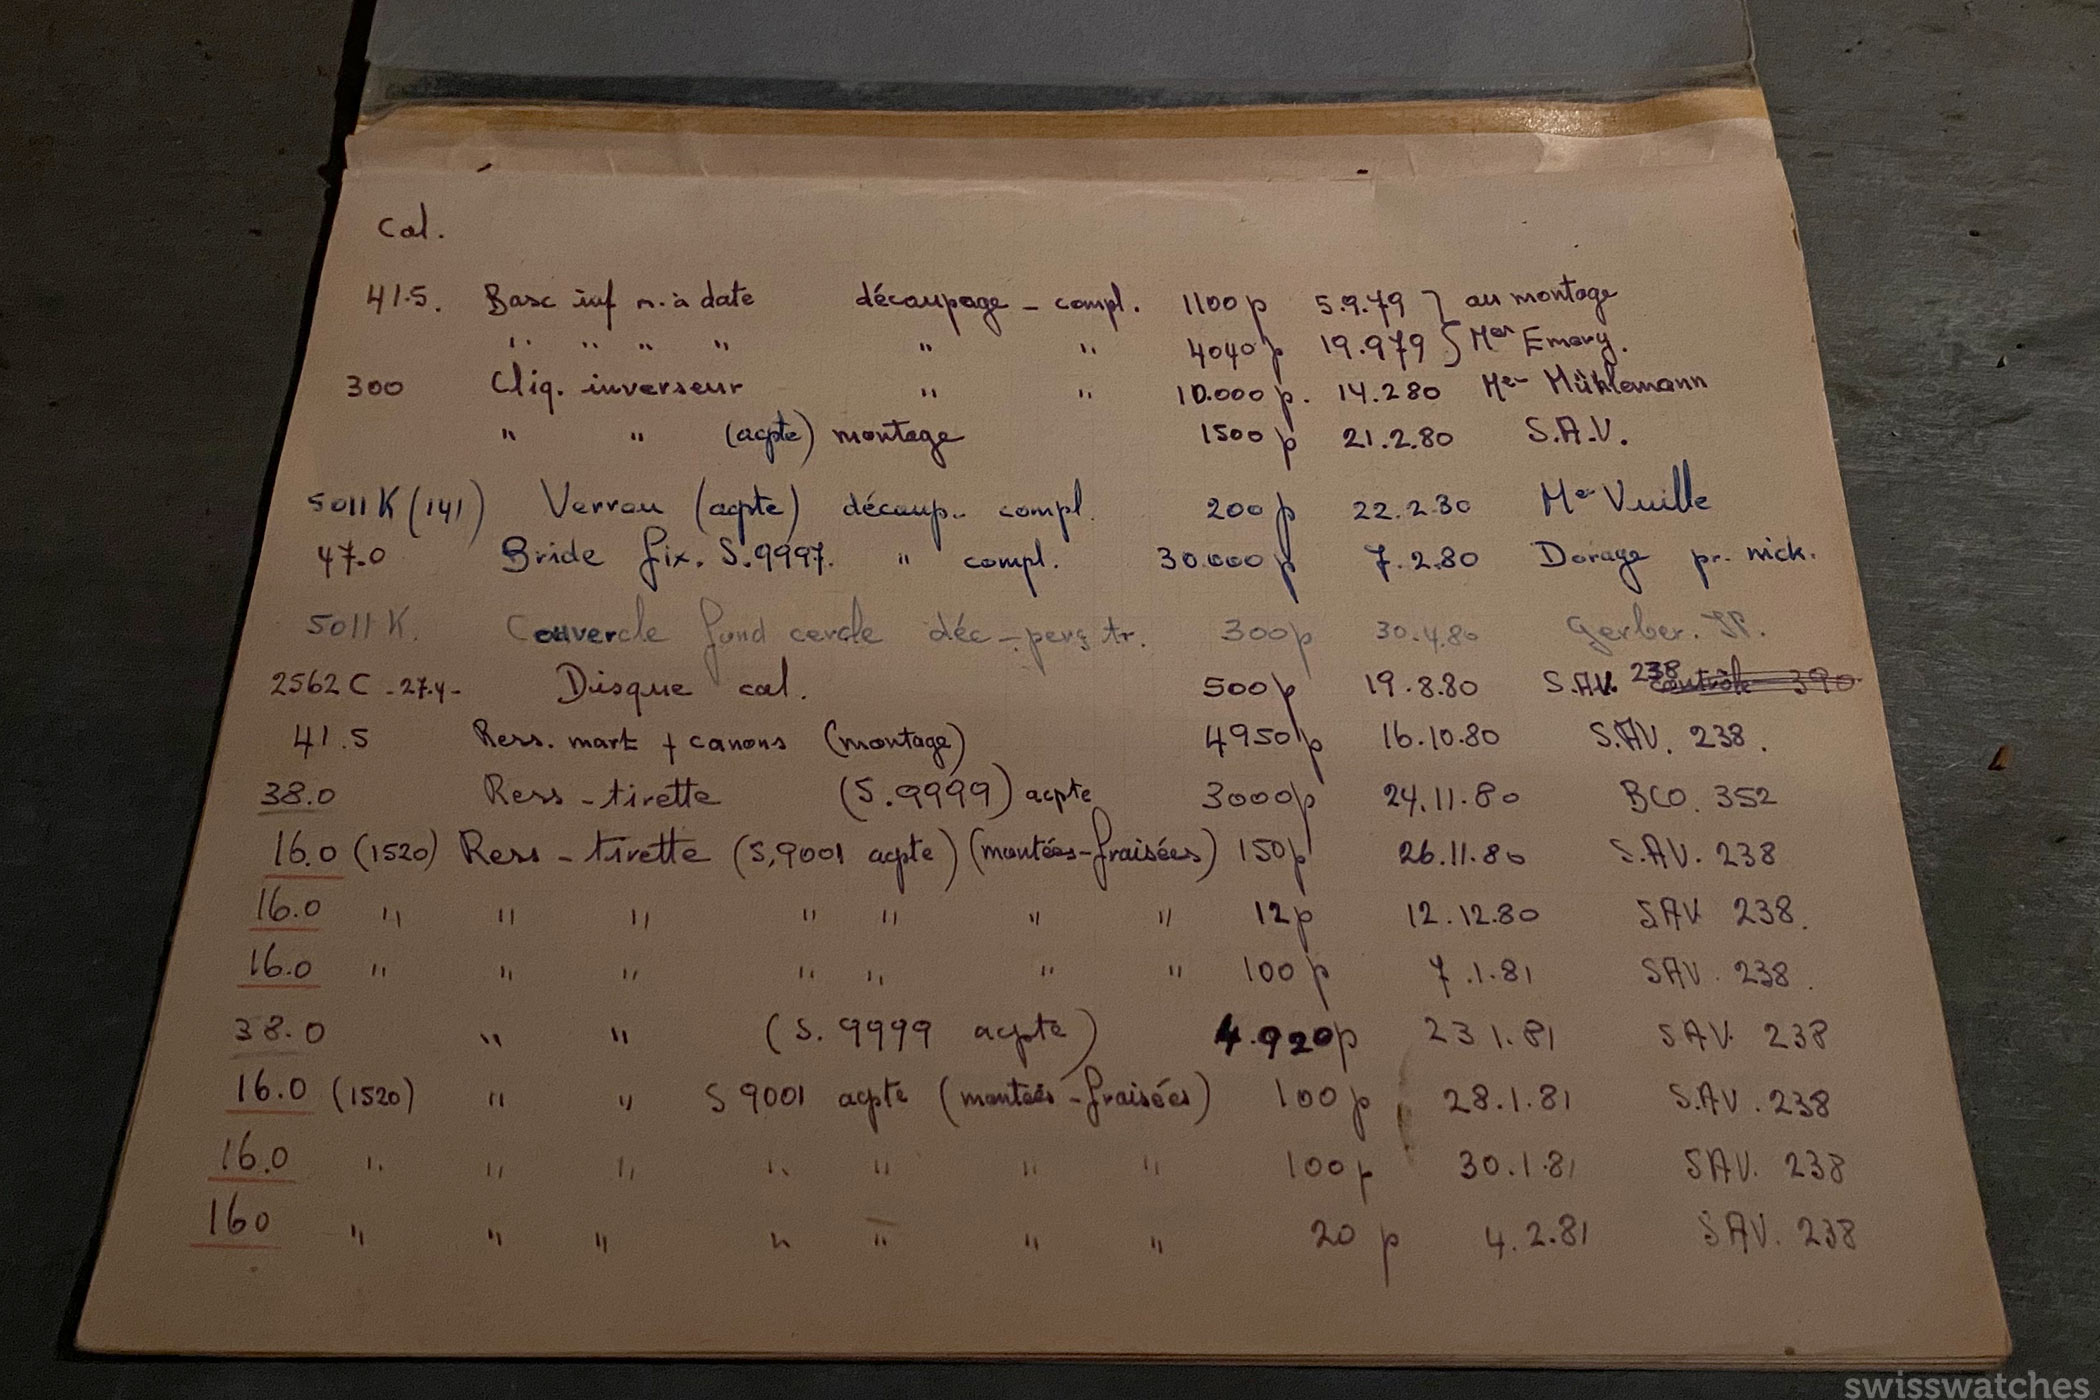 Cal.
41.5. Basc inf m. à date découpage - compl. 1100 p 5.9.79 } au montage
" " " " " " 4040 p 19.979 } Mer Emery.
300 Cliq. inverseur " " 10.000 p. 14.2 80 Mer Mühlemann
" " (acpte) montage 1500 p 21.2.80 S.A.V.
5011 K (141) Verrou (acpte) découp.. compl. 200 p 22.2.80 Mer Vuille
47.0 Bride fix. S.9997. " compl. 30.000 p 7.2.80 Dorage pr. nick.
5011 K. Couvercle fond cercle déc-perç tr. 300 p 30.4.80 Gerber. JP.
2562 C - 27.4 - Disque cal. 500 p 19.8.80 S.AV. 238 contrôle 390
41.5 Ress. mart + canons (montage) 4950 p 16.10.80 S.AV. 238.
38.0 Ress - tirette (S.9999) acpte 3000 p 24.11.80 BCO. 352
16.0 (1520) Ress - tirette (S,9001 acpte) (montées-fraisées) 150 p 26.11.80 S.AV. 238
16.0 " " " " " " " 12 p 12.12.80 SAV 238.
16.0 " " " " " " " 100 p 7.1.81 SAV. 238.
38.0 " " (S. 9999 acpte) 4.920 p 23 1.81 SAV. 238
16.0 (1520) " " S 9001 acpte (montées-fraisées) 100 p 28.1.81 S.AV. 238
16.0 " " " " " " " 100 p 30.1.81 SAV. 238
160 " " " " " " " 20 p 4.2.81 SAV. 238
swisswatches